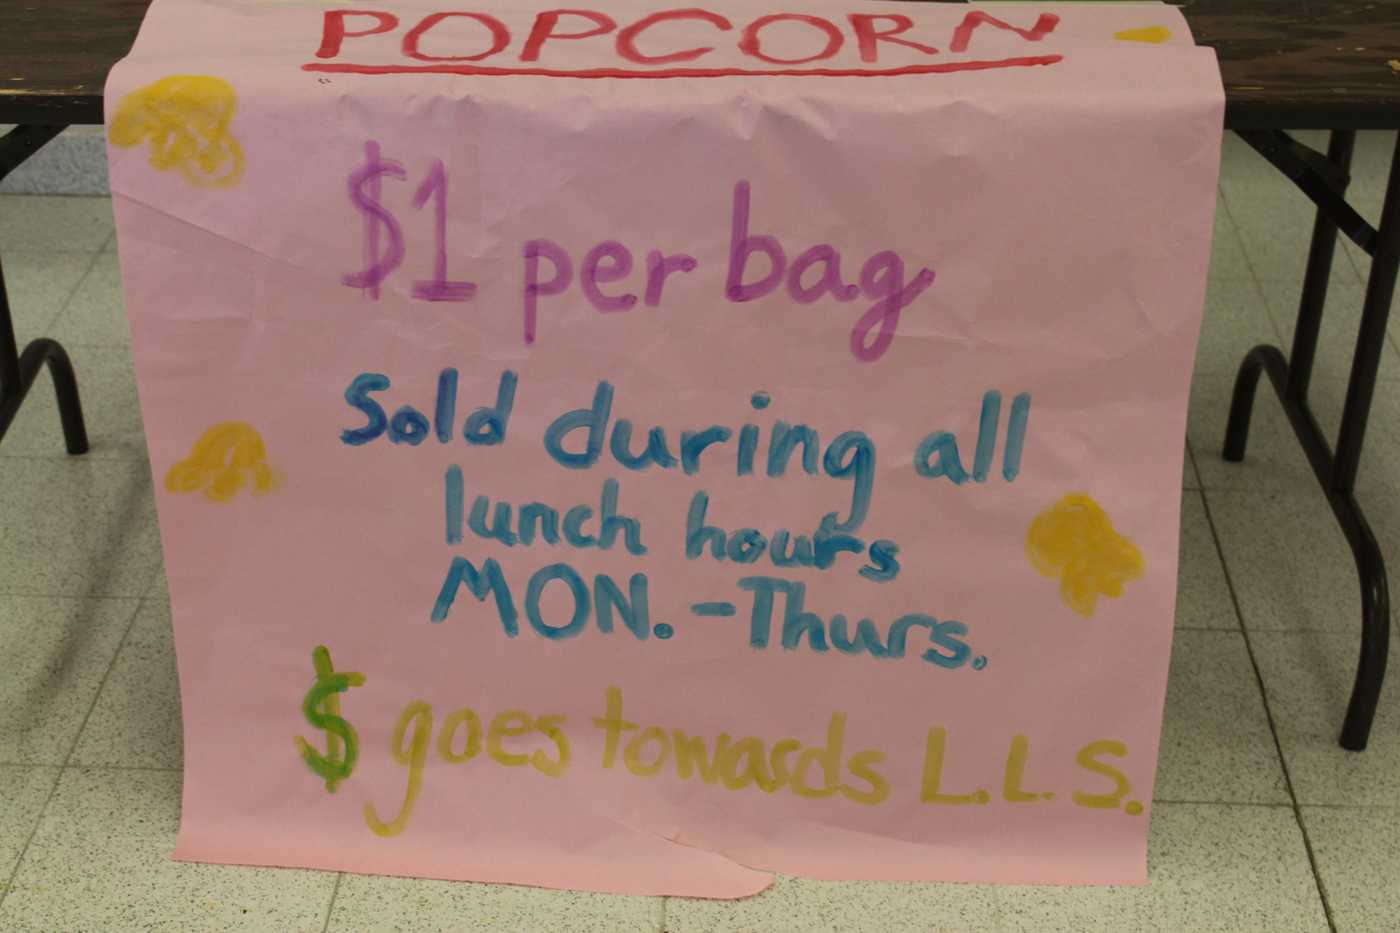 POPCORN
$1 per bag
Sold during all
lunch hours
MON. - Thurs.
$ goes towards L.L.S.